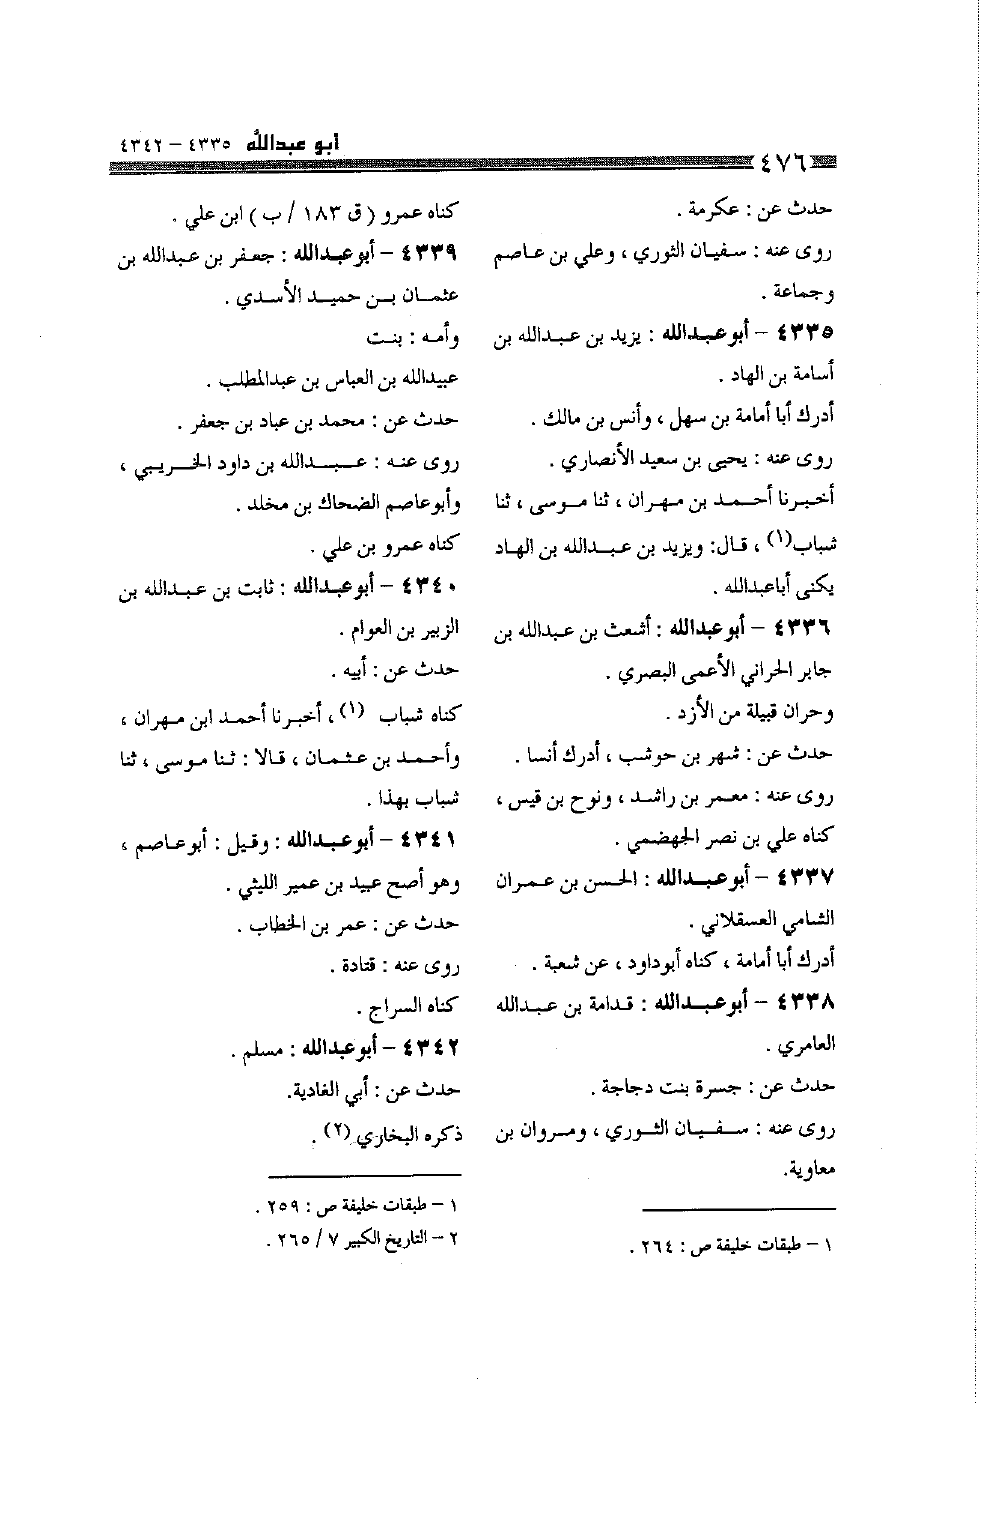 أبو عبدالله ٤٣٣٥ – ٤٣٤٢
٤٧٦
حدث عن : عكرمة .
روى عنه : سفيان الثوري ، وعلي بن عاصم
وجماعة .
٤٣٣٥ – أبو عبدالله : يزيد بن عبدالله بن
أسامة بن الهاد .
أدرك أبا أمامة بن سهل ، وأنس بن مالك .
روى عنه : يحيى بن سعيد الأنصاري .
أخبرنا أحمد بن مهران ، ثنا موسى ، ثنا
شباب(١) ، قال: ويزيد بن عبدالله بن الهاد
يكنى أباعبدالله .
٤٣٣٦ – أبو عبدالله : أشعث بن عبدالله بن
جابر الحراني الأعمى البصري .
وحران قبيلة من الأزد .
حدث عن : شهر بن حوشب ، أدرك أنسا .
روى عنه : معمر بن راشد ، ونوح بن قيس ،
كناه علي بن نصر الجهضمي .
٤٣٣٧ – أبو عبدالله : الحسن بن عمران
الشامي العسقلاني .
أدرك أبا أمامة ، كناه أبوداود ، عن شعبة .
٤٣٣٨ – أبو عبدالله : قدامة بن عبدالله
العامري .
حدث عن : جسرة بنت دجاجة .
روى عنه : سفيان الثوري ، ومروان بن
معاوية.
١ – طبقات خليفة ص : ٢٦٤ .
كناه عمرو ( ق ١٨٣ / ب ) ابن علي .
٤٣٣٩ – أبو عبدالله : جعفر بن عبدالله بن
عثمان بن حميد الأسدي .
وأمه : بنت
عبيدالله بن العباس بن عبدالمطلب .
حدث عن : محمد بن عباد بن جعفر .
روى عنه : عبدالله بن داود الخريبي ،
وأبو عاصم الضحاك بن مخلد .
كناه عمرو بن علي .
٤٣٤٠ – أبو عبدالله : ثابت بن عبدالله بن
الزبير بن العوام .
حدث عن : أبيه .
كناه شباب (١) ، أخبرنا أحمد ابن مهران ،
وأحمد بن عثمان ، قالا : ثنا موسى ، ثنا
شباب بهذا .
٤٣٤١ – أبو عبدالله : وقيل : أبو عاصم ،
وهو أصح عبيد بن عمير الليثي .
حدث عن : عمر بن الخطاب .
روى عنه : قتادة .
كناه السراج .
٤٣٤٢ – أبو عبدالله : مسلم .
حدث عن : أبي الغادية.
ذكره البخاري (٢) .
١ – طبقات خليفة ص : ٢٥٩ .
٢ – التاريخ الكبير ٧ / ٢٦٥ .